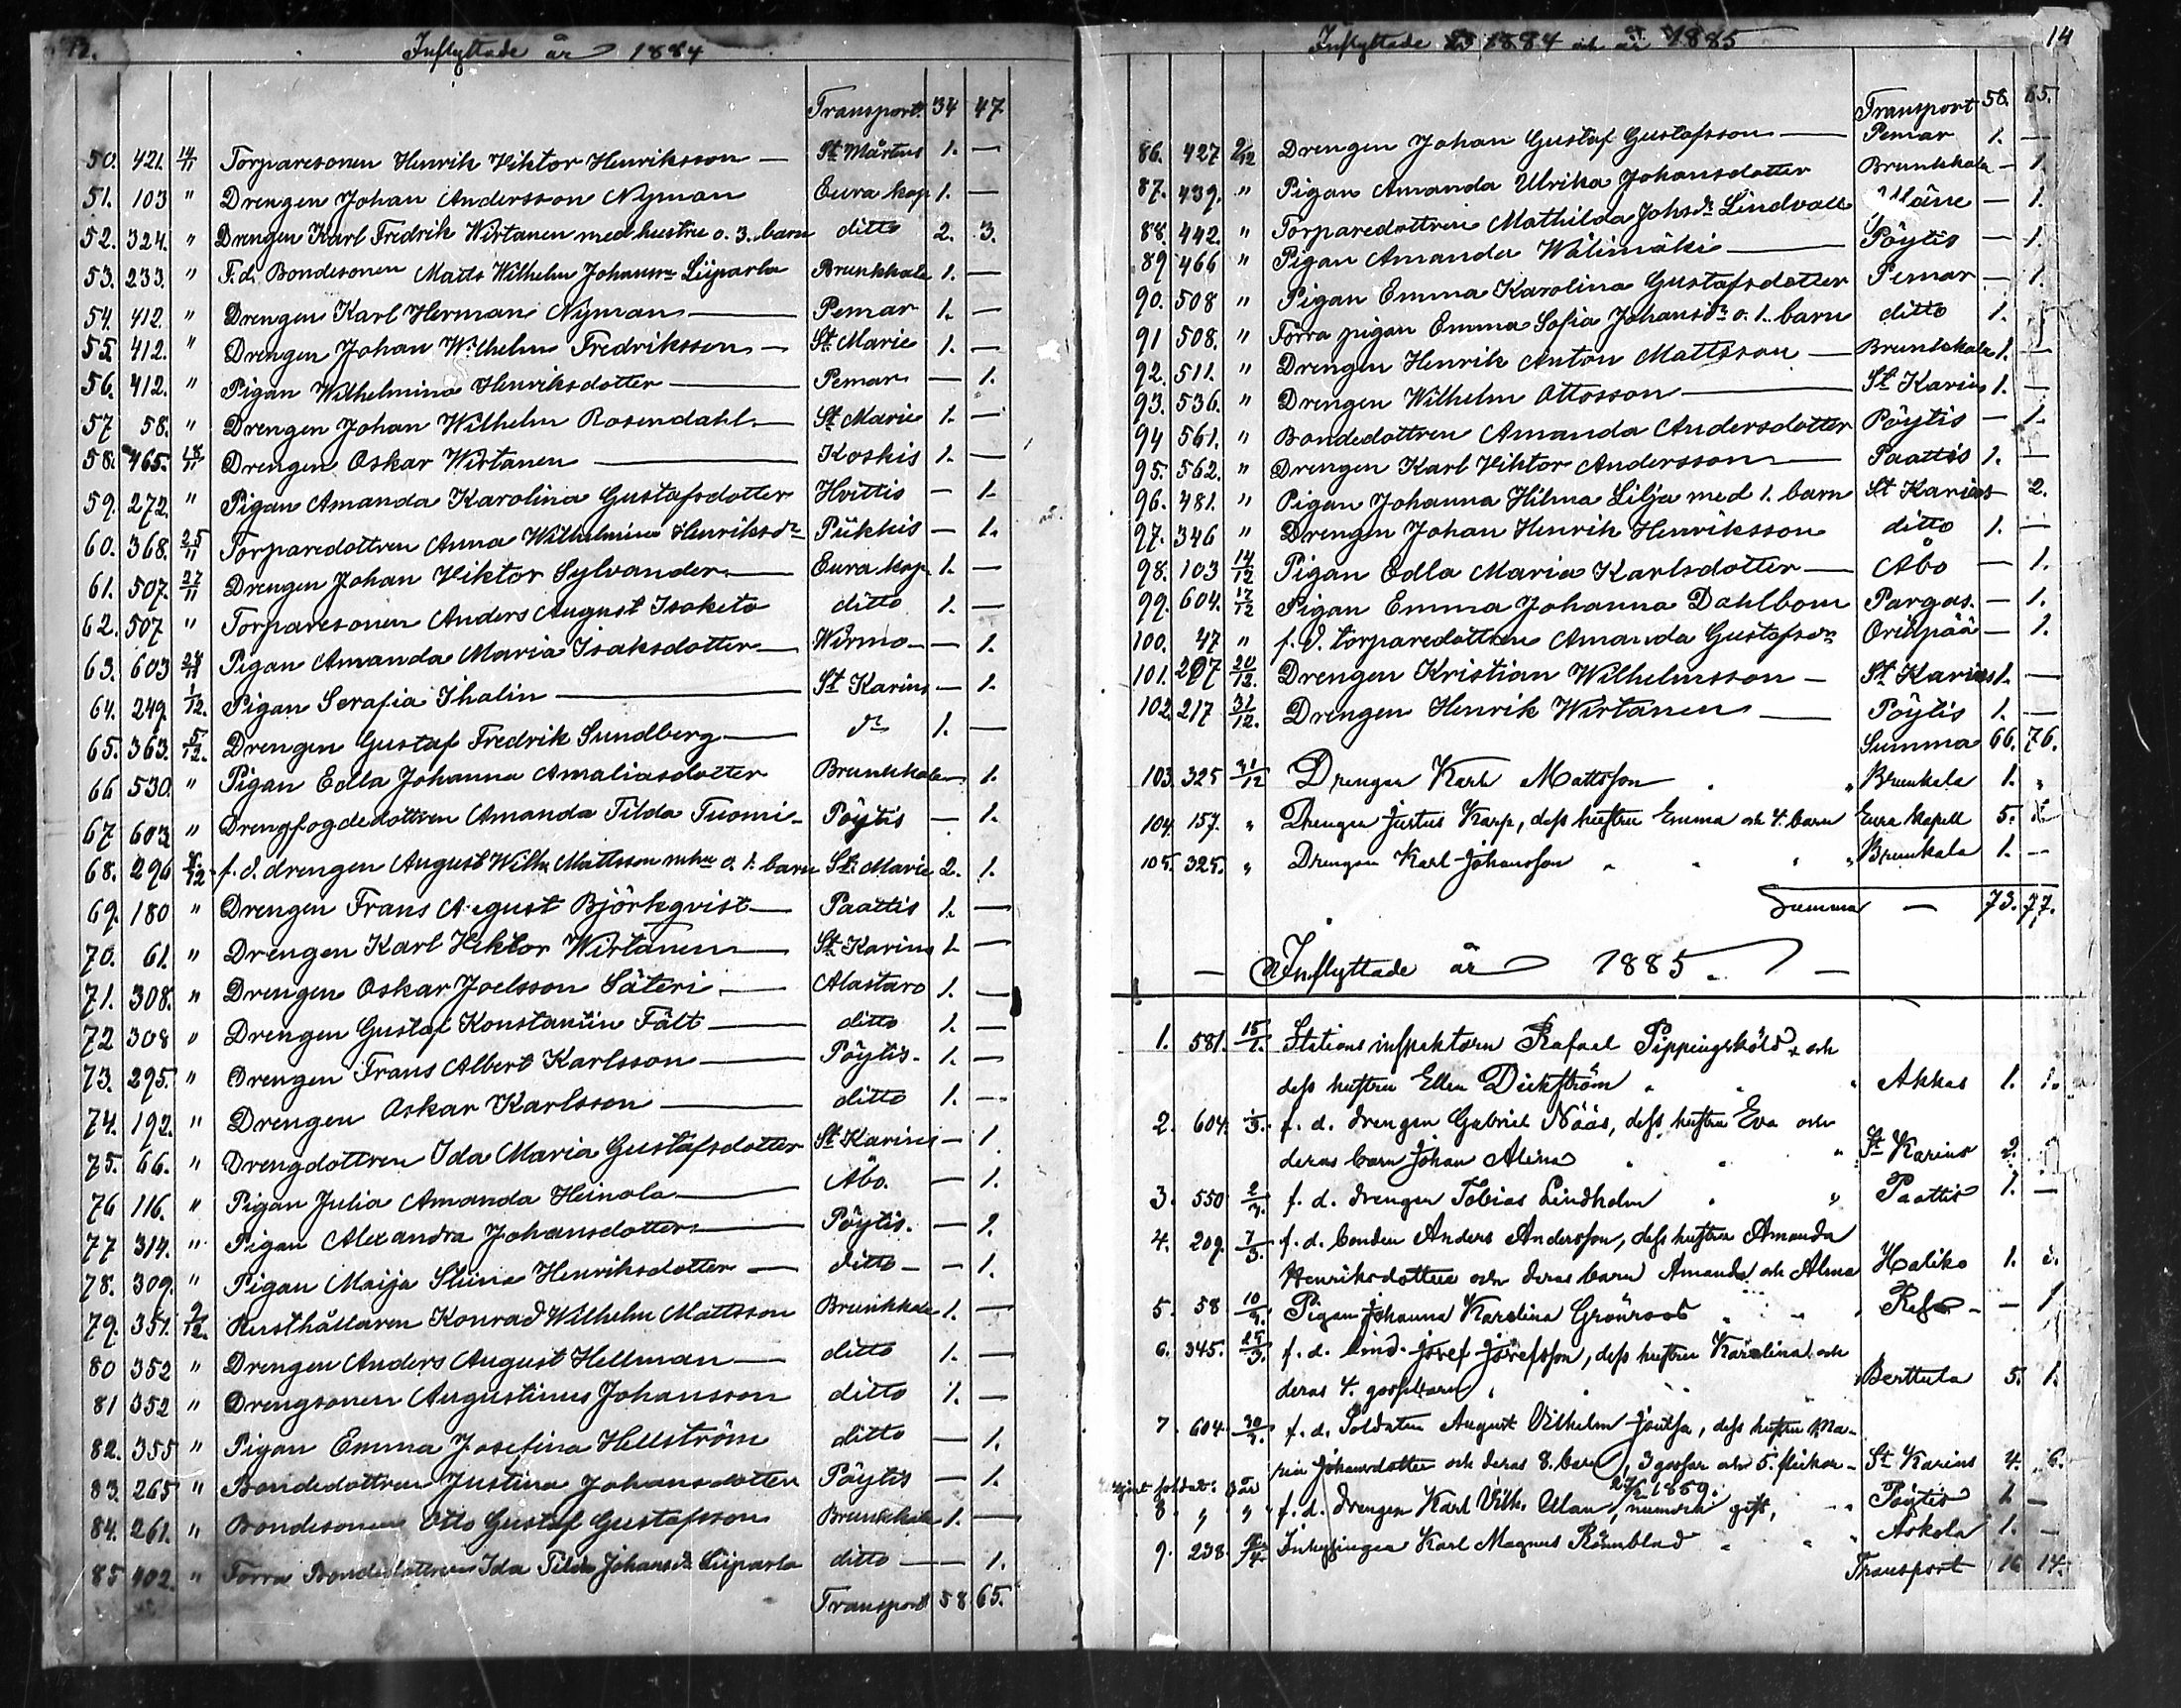 Inflyttade år 1884
Transport 34 47
50. 421. 14/11 Torparesonen Henrik Viktor Henriksson — St Mårtens 1. —
51. 103 " Drengen Johan Andersson Nyman Eura kap. 1. —
52. 324. " Drengen Karl Fredrik Wirtanen med hustru o. 3. barn ditto 2. 3.
53. 233. " F.d. Bondesonen Matts Wilhelm Johanssn Liiparla Brunkkala 1. —
54. 412. " Drengen Karl Herman Nyman — Pemar 1. —
55. 412. " Drengen Johan Wilhelm Fredriksson — St. Marie 1. —
56. 412. " Pigan Wilhelmina Henriksdotter — Pemar — 1.
57 58. " Drengen Johan Wilhelm Rosendahl — St. Marie 1. —
58. 465. 18/11 Drengen Oskar Wirtanen — Koskis 1. —
59. 272. " Pigan Amanda Karolina Gustafsdotter Hvittis — 1.
60. 368. 25/11 Torparedottren Anna Wilhelmina Henriksdr Piikkis — 1.
61. 507. 27/11 Drengen Johan Viktor Sylvander — Eura kap. 1. —
62. 507 " Torparesonen Anders August Isoketo ditto 1. —
63. 603 Pigan Amanda Maria Isaksdotter — Wirmo — 1.
64. 249. 1/12. Pigan Serafia Thalin — St Karins — 1.
65. 363. 5/12. Drengen Gustaf Fredrik Sundberg — do 1. —
66 530. " Pigan Edla Johanna Amaliasdotter Brunkkala — 1.
67 603 " Drengfogdedottren Amanda Tilda Tuomi — Pöytis — 1.
68. 296 f. d. drengen August Wilh. Mattsson m hu o. 1. barn St. Marie 2. 1.
69. 180 " Drengen Frans August Björkqvist — Paattis 1. —
70. 61. " Drengen Karl Viktor Wirtanen — St. Karins 1. —
71. 308. " Drengen Oskar Joelsson Säteri — Alastaro 1. —
72 308 " Drengen Gustaf Konstantin Fält — ditto 1. —
73. 295. " Drengen Frans Albert Karlsson — Pöytis. 1. —
74. 192. " Drengen Oskar Karlsson — ditto 1. —
75. 66. " Drengdottren Ida Maria Gustafsdotter St. Karins — 1
76 116. " Pigan Julia Amanda Heinola — Åbo. — 1.
77 314. " Pigan Alexandra Johansdotter — Pöytis. — 1.
78. 309. " Pigan Maija Stina Henriksdotter — ditto — 1.
79. 351. 9/12. Rusthållaren Konrad Wilhelm Mattsson Brunkkala 1. —
80 352 " Drengen Anders August Hellman — ditto 1. —
81 352 " Drengsonen Augustinus Johansson ditto 1. —
82. 355 " Pigan Emma Josefina Hellström ditto — 1.
83. 265 " Bondedottren Justina Johansdotter Pöytis — 1.
84. 261. " Bondesonen Otto Gustaf Gustafsson Brunkkala 1. —
85 402. " Förra Bondedottren Ida Tilda Johansdr Liiparla ditto — 1.
Transport 58 65.
Inflyttade år 1884 och år 1885 14
Transport 58. 65.
86. 427 9/12 Drengen Johan Gustaf Gustafsson — Pemar 1. —
87. 439. " Pigan Amanda Ulrika Johansdotter Brunkkala — 1.
88. 442. " Torparedottren Mathilda Johsdr Lindvall — 1.
89 466 " Pigan Amanda Välimäki — Pöytis — 1.
90. 508 " Pigan Emma Karolina Gustafsdotter Pemar — 1.
91 508. " Förra pigan Emma Sofia Johansdr o. 1. barn ditto 1.
92. 511. " Drengen Henrik Anton Mattsson — Brunkkala 1. —
93. 536. " Drengen Wilhelm Ottosson — St. Karins 1. —
94 561. " Bondedottren Amanda Andersdotter Pöytis — 1.
95. 562. " Drengen Karl Viktor Andersson — Paattis 1. —
96. 481. " Pigan Johanna Hilma Lilja med 1. barn St Karins — 2.
97. 346 " Drengen Johan Henrik Henriksson ditto 1. —
98. 103 14/12 Pigan Edla Maria Karlsdotter — Åbo — 1.
99. 604. 17/12 Pigan Emma Johanna Dahlbom Pargas. — 1.
100. 47 " f. d. torparedottren Amanda Gustafsdr Oripää — 1.
101. 207 20/12. Drengen Kristian Wilhelmsson — St. Karins 1. —
102. 217 31/12. Drengen Henrik Wirtanen — Pöytis 1. —
Summa 66. 76.
103. 325 31/12 Drengen Karl Mattsson " Brunkala 1. "
104. 157. " Drengen Justus Karp, dess hustru Emma och 4. barn Eura kapell 5. 1.
105. 325. " Drengen Karl Johansson " Brunkala 1. —
Summa — 73. 77.
— Inflyttade år 1885. —
1. 581. 15/1. Stations inspektoren Rafael Pippingsköld och
dess hustru Ellen Dickström " Akkas 1. 1.
2. 604. f. d. drengen Gabriel Nääs, dess hustru Eva och
deras barn Johan Alina " St Karins 2.
3. 550 f. d. drengen Tobias Lindholm " Paattis 1. —
4. 209. 7/3. f. d. bonden Anders Andersson, dess hustru Amanda
Henriksdotter och deras barn Amanda och Alma Haliko 1. 3.
5. 58 10/3. Pigan Johanna Karolina Grönroos — 1
6. 345. f. d. Josef Josefsson, dess hustru Karolina och
deras 4. gossebarn " Berttula 5. 1.
7. 604. f. d. Soldaten August Vilhelm Joutsa, dess hustru Ma-
ria Johansdotter och deras 8. barn, 3 gossar och 5. flickor — St. Karins 4. 6.
8 " " f. d. drengen Karl Vilh. Ulan, numera gift, Pöytis 1 —
9. 238. Inhysingen Karl Magnus Rönnblad " Askola 1. —
Transport 16 14.